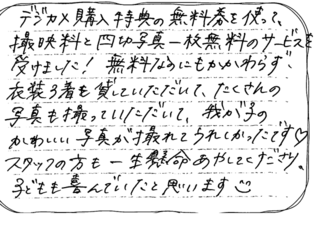 デジカメ購入特典の無料券を使って、
撮映料と四切写真一枚無料のサービスを
受けました! 無料なのにもかかわらず
衣装3着を貸していただいて、たくさんの
写真も撮っていただいて、我が子の
かわいい写真が撮れてうれしかったです♡
スタッフの方も一生懸命あやしてくださり、
子どもも喜んでいたと思います☺